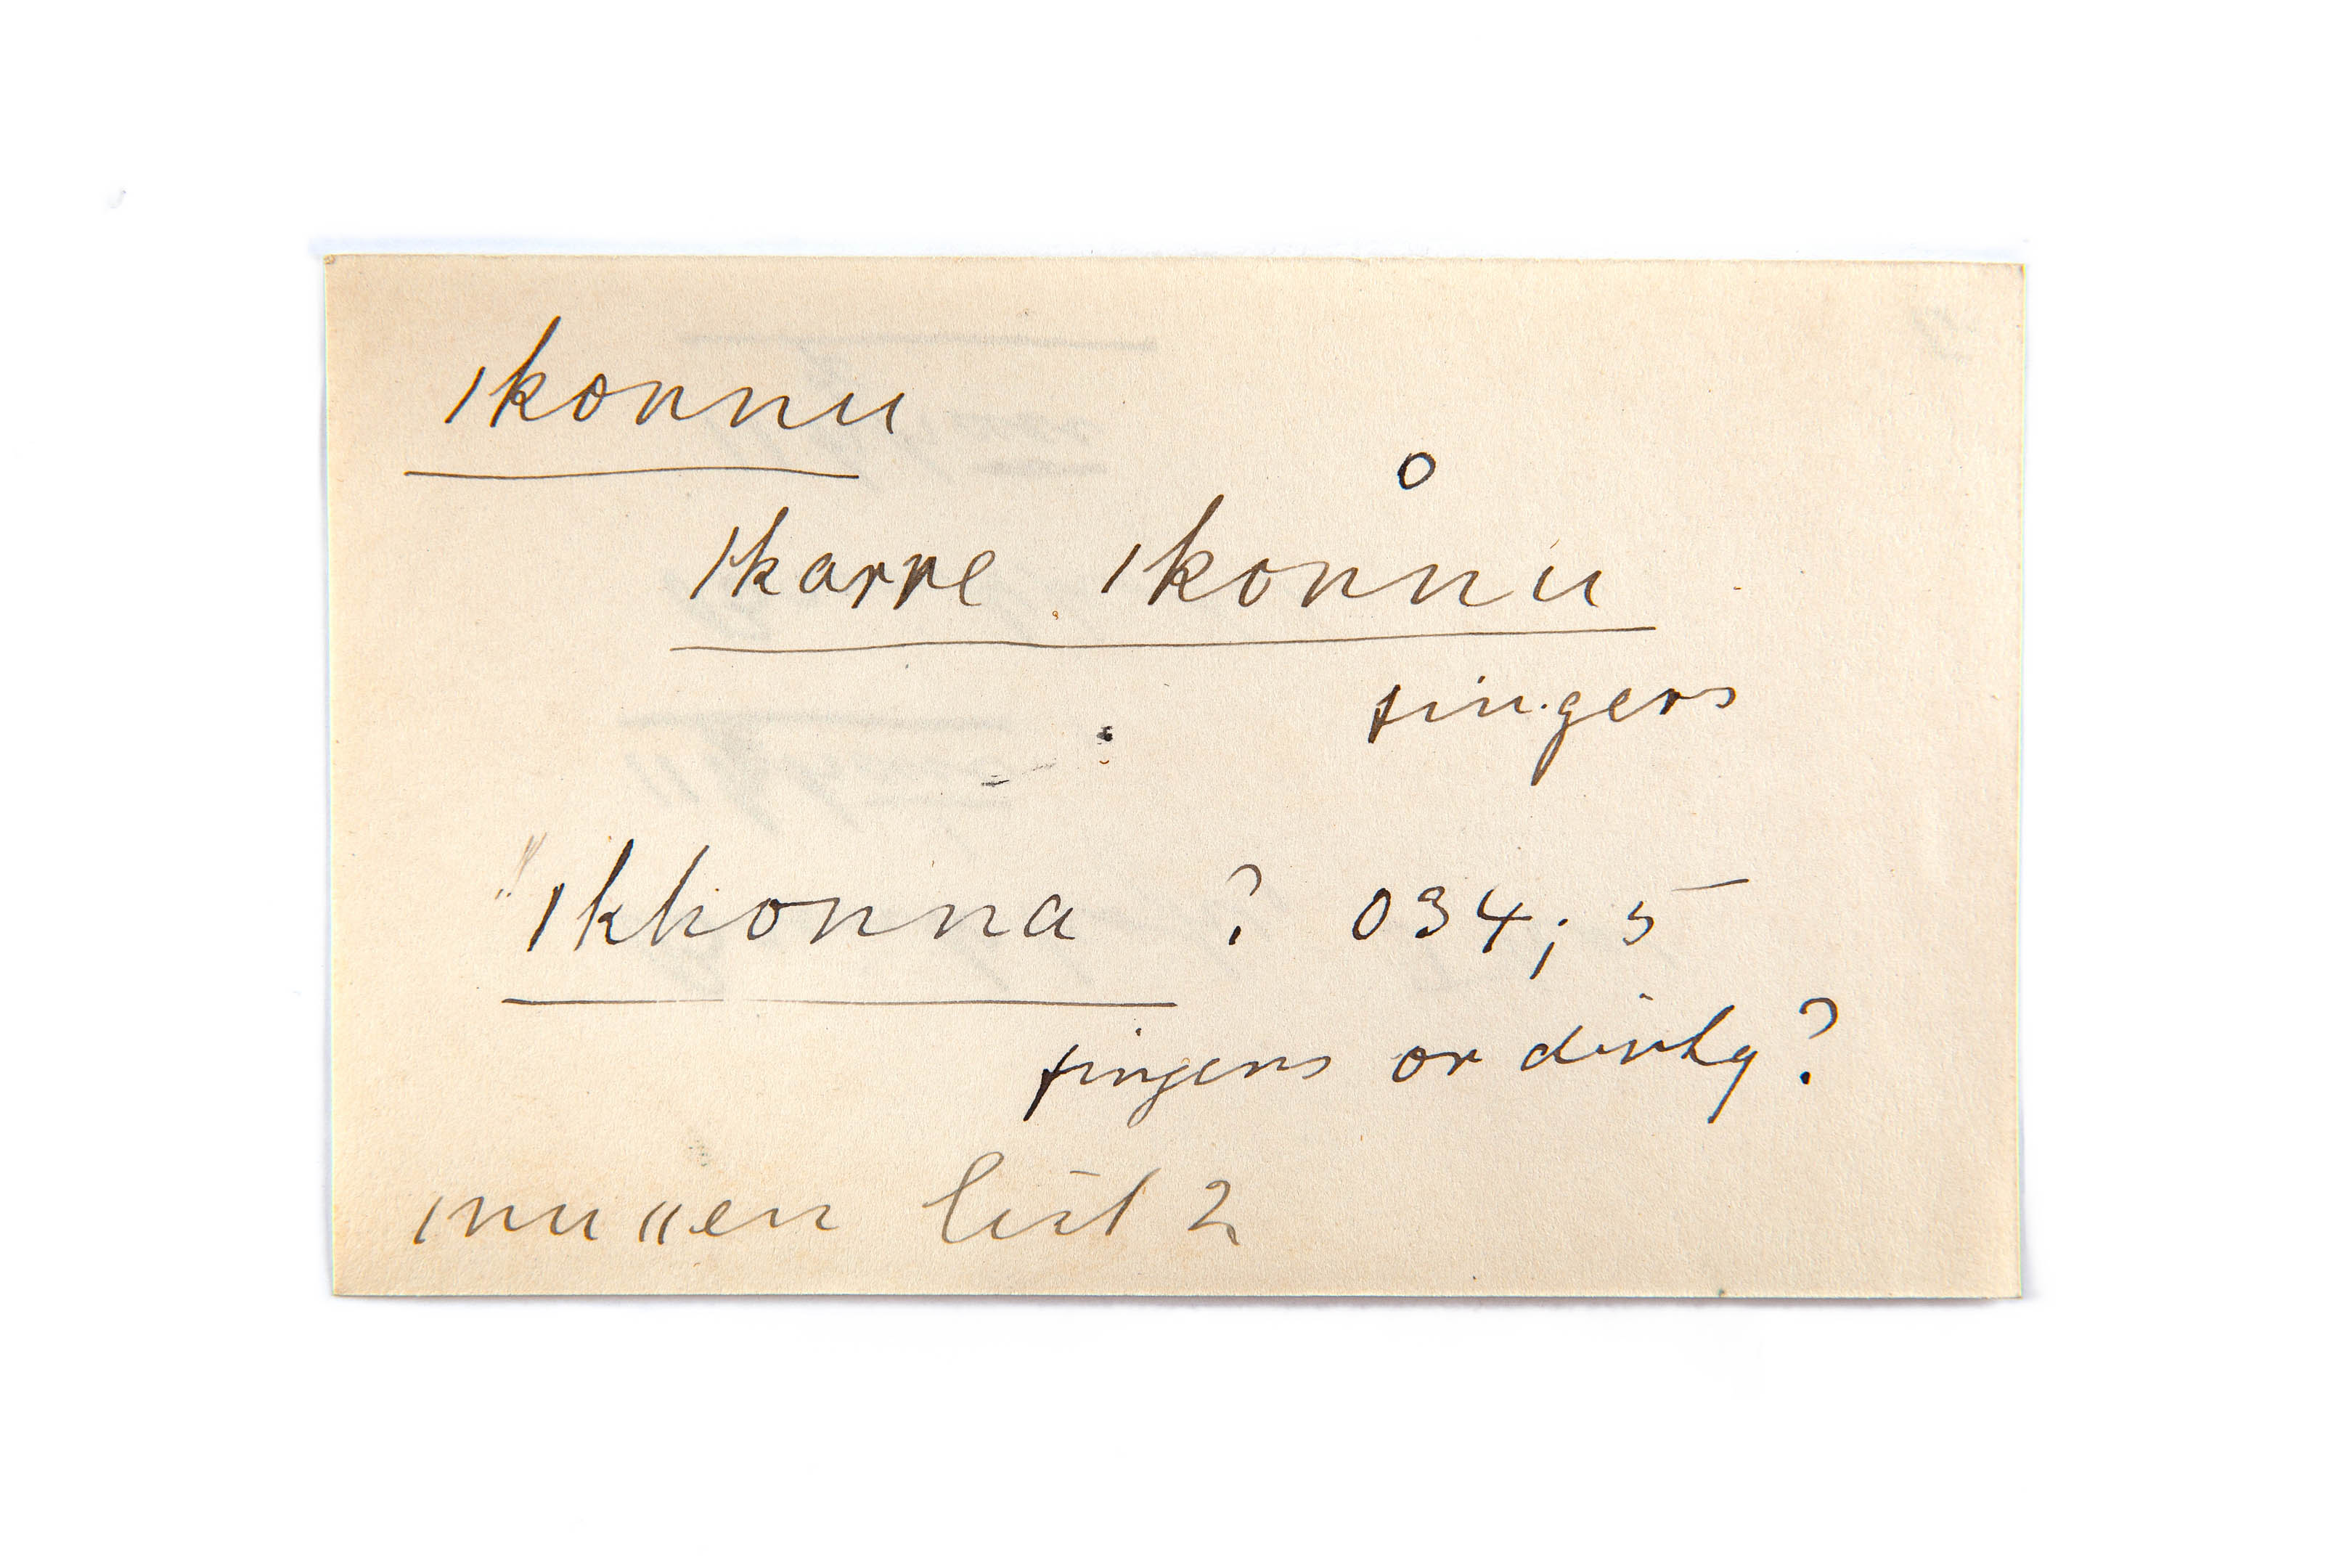 |konnu
o
|karre |konnu
fingers
"|khonna ? 034; 5
fingers or dirty?
|nu ||en list 2